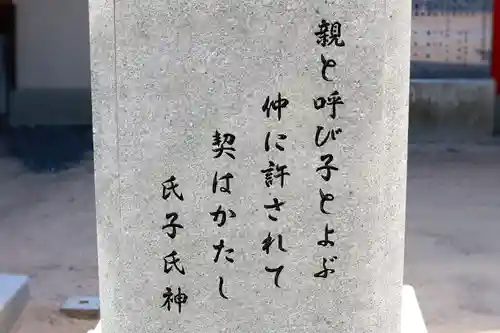 親と呼び子とよぶ
仲に許されて
契はかたし
氏子氏神